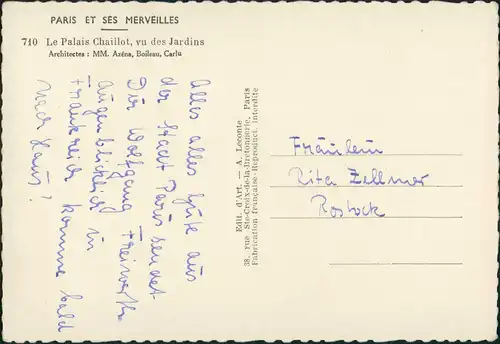 PARIS ET SES MERVEILLES
710 Le Palais Chaillot, vu des Jardins
Architectes : MM. Azéna, Boileau, Carlu
Alles alles gute aus
der Stadt Paris sendet
Dir Wolfgang
augenblicklich in
Frankreich komme bald
nach Haus!
Edit. d'Art. — A. Leconte
38, rue Ste-Croix-de-la-Bretonnerie, Paris
Fabrication française - Reproduct. interdite
Fräulein
Rita Zellmer
Rostock